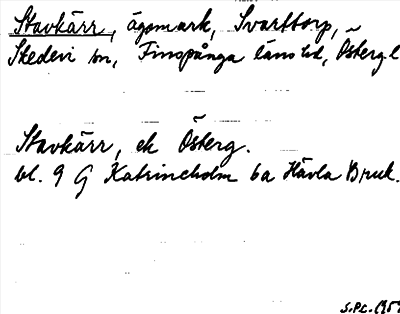 Stavkärr, ägomark, Svarttorp,
Skedevi sn, Finspånga läns hd, Österg.l
Stavkärr, ek Österg.
bl. 9 G Katrineholm 6a Hävla Bruk.
S.PL.